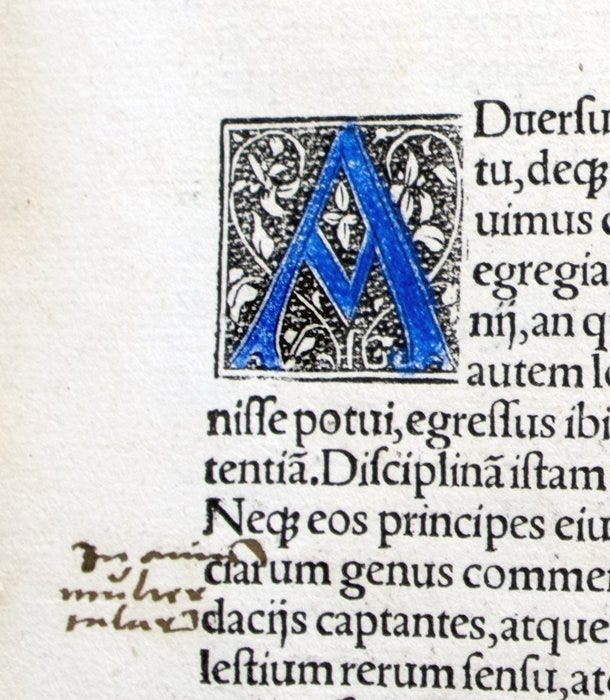 ADuerſu
tu,deqꝫ
uimus c
egregia
nij,an q
autem lo
niſſe potui,egreſſus ibi
tentiã.Diſciplinã iſtam
Neqꝫ eos principes eiu
ciarum genus commen
dacijs captantes,atque
leſtium rerum ſenſu,at